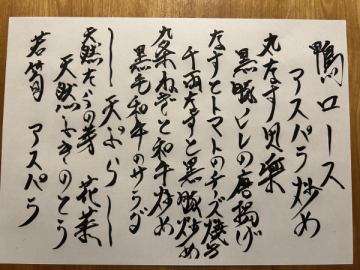 鴨ロース
アスパラ炒め
丸なす田楽
黒豚ヒレの唐揚げ
なすとトマトのチーズ焼き
千両なすと黒豚炒め
九条ねぎと和牛炒め
黒毛和牛のサラダ
天ぷら
天然たらの芽 花菜
天然ふきのとう
若筍 アスパラ